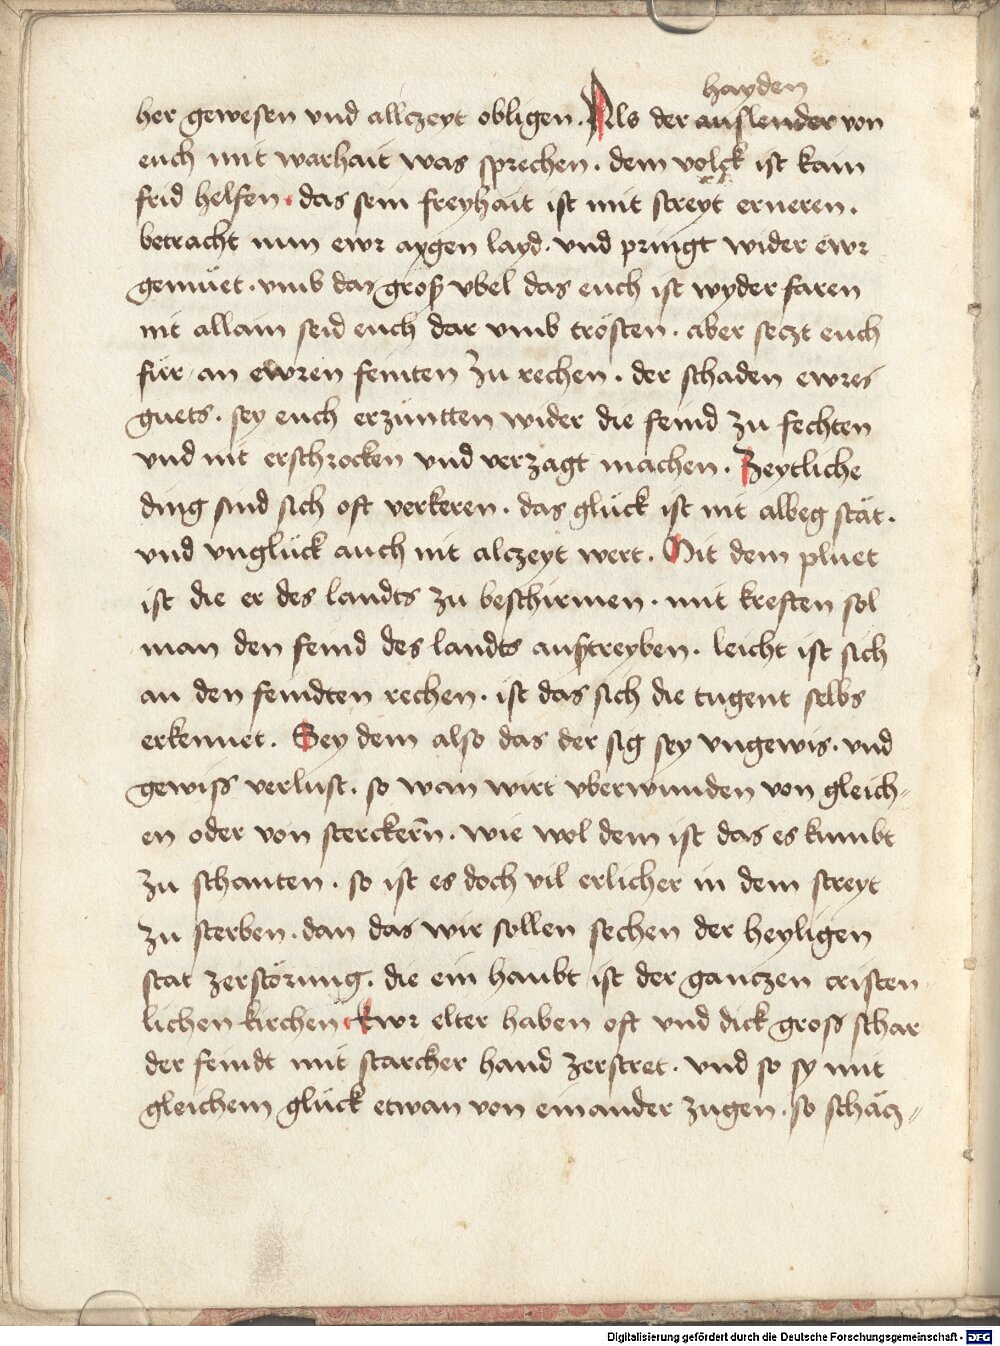 hayden
her gewesen vnd allczeyt obligen. Als der auslender von
euch mit warhait was sprechen. dem volck ist kain
frid helfen. das sein freyhait ist mit streyt erneren.
betracht nun ewr aygen layd. vnd pringt wider ewr
gemüet. vmb das groß vbel das euch ist wyder faren
nit allain seid euch dar vmb trösten. aber seczt euch
für an ewren feinten zu rechen. der schaden ewres
guets. sey euch erzüntten wider die feind zu fechten
vnd nit erschrocken vnd verzagt machen. Zeytliche
ding sind sich oft verkeren. das glück ist nit albeg stät.
vnd vnglück auch nit alczeyt wert. Mit dem pluet
ist die er des landts zu beschirmen. mit kreften sol
man den feind des landts außtreyben. leicht ist sich
an den feindten rechen. ist das sich die tugent selbs
erkennet. Sey dem also das der sig sey vngewis. vnd
gewiss verlust. so wan wirt vberwunden von gleich-
en oder von sterckern̄. wie wol dem ist das es kumbt
zu schanten. so ist es doch vil erlicher in dem streyt
zu sterben. dan das wir sollen sechen der heyligen
stat zerstörung. die ein haubt ist der ganczen cristen
lichen kirchen Ewr elter haben oft vnd dick gross schar
der feindt mit starcher hand zerstret. vnd so sy mit
gleichem glück etwan von einander zugen. so schäcz-
Digitalisierung gefördert durch die Deutsche Forschungsgemeinschaft - DFG